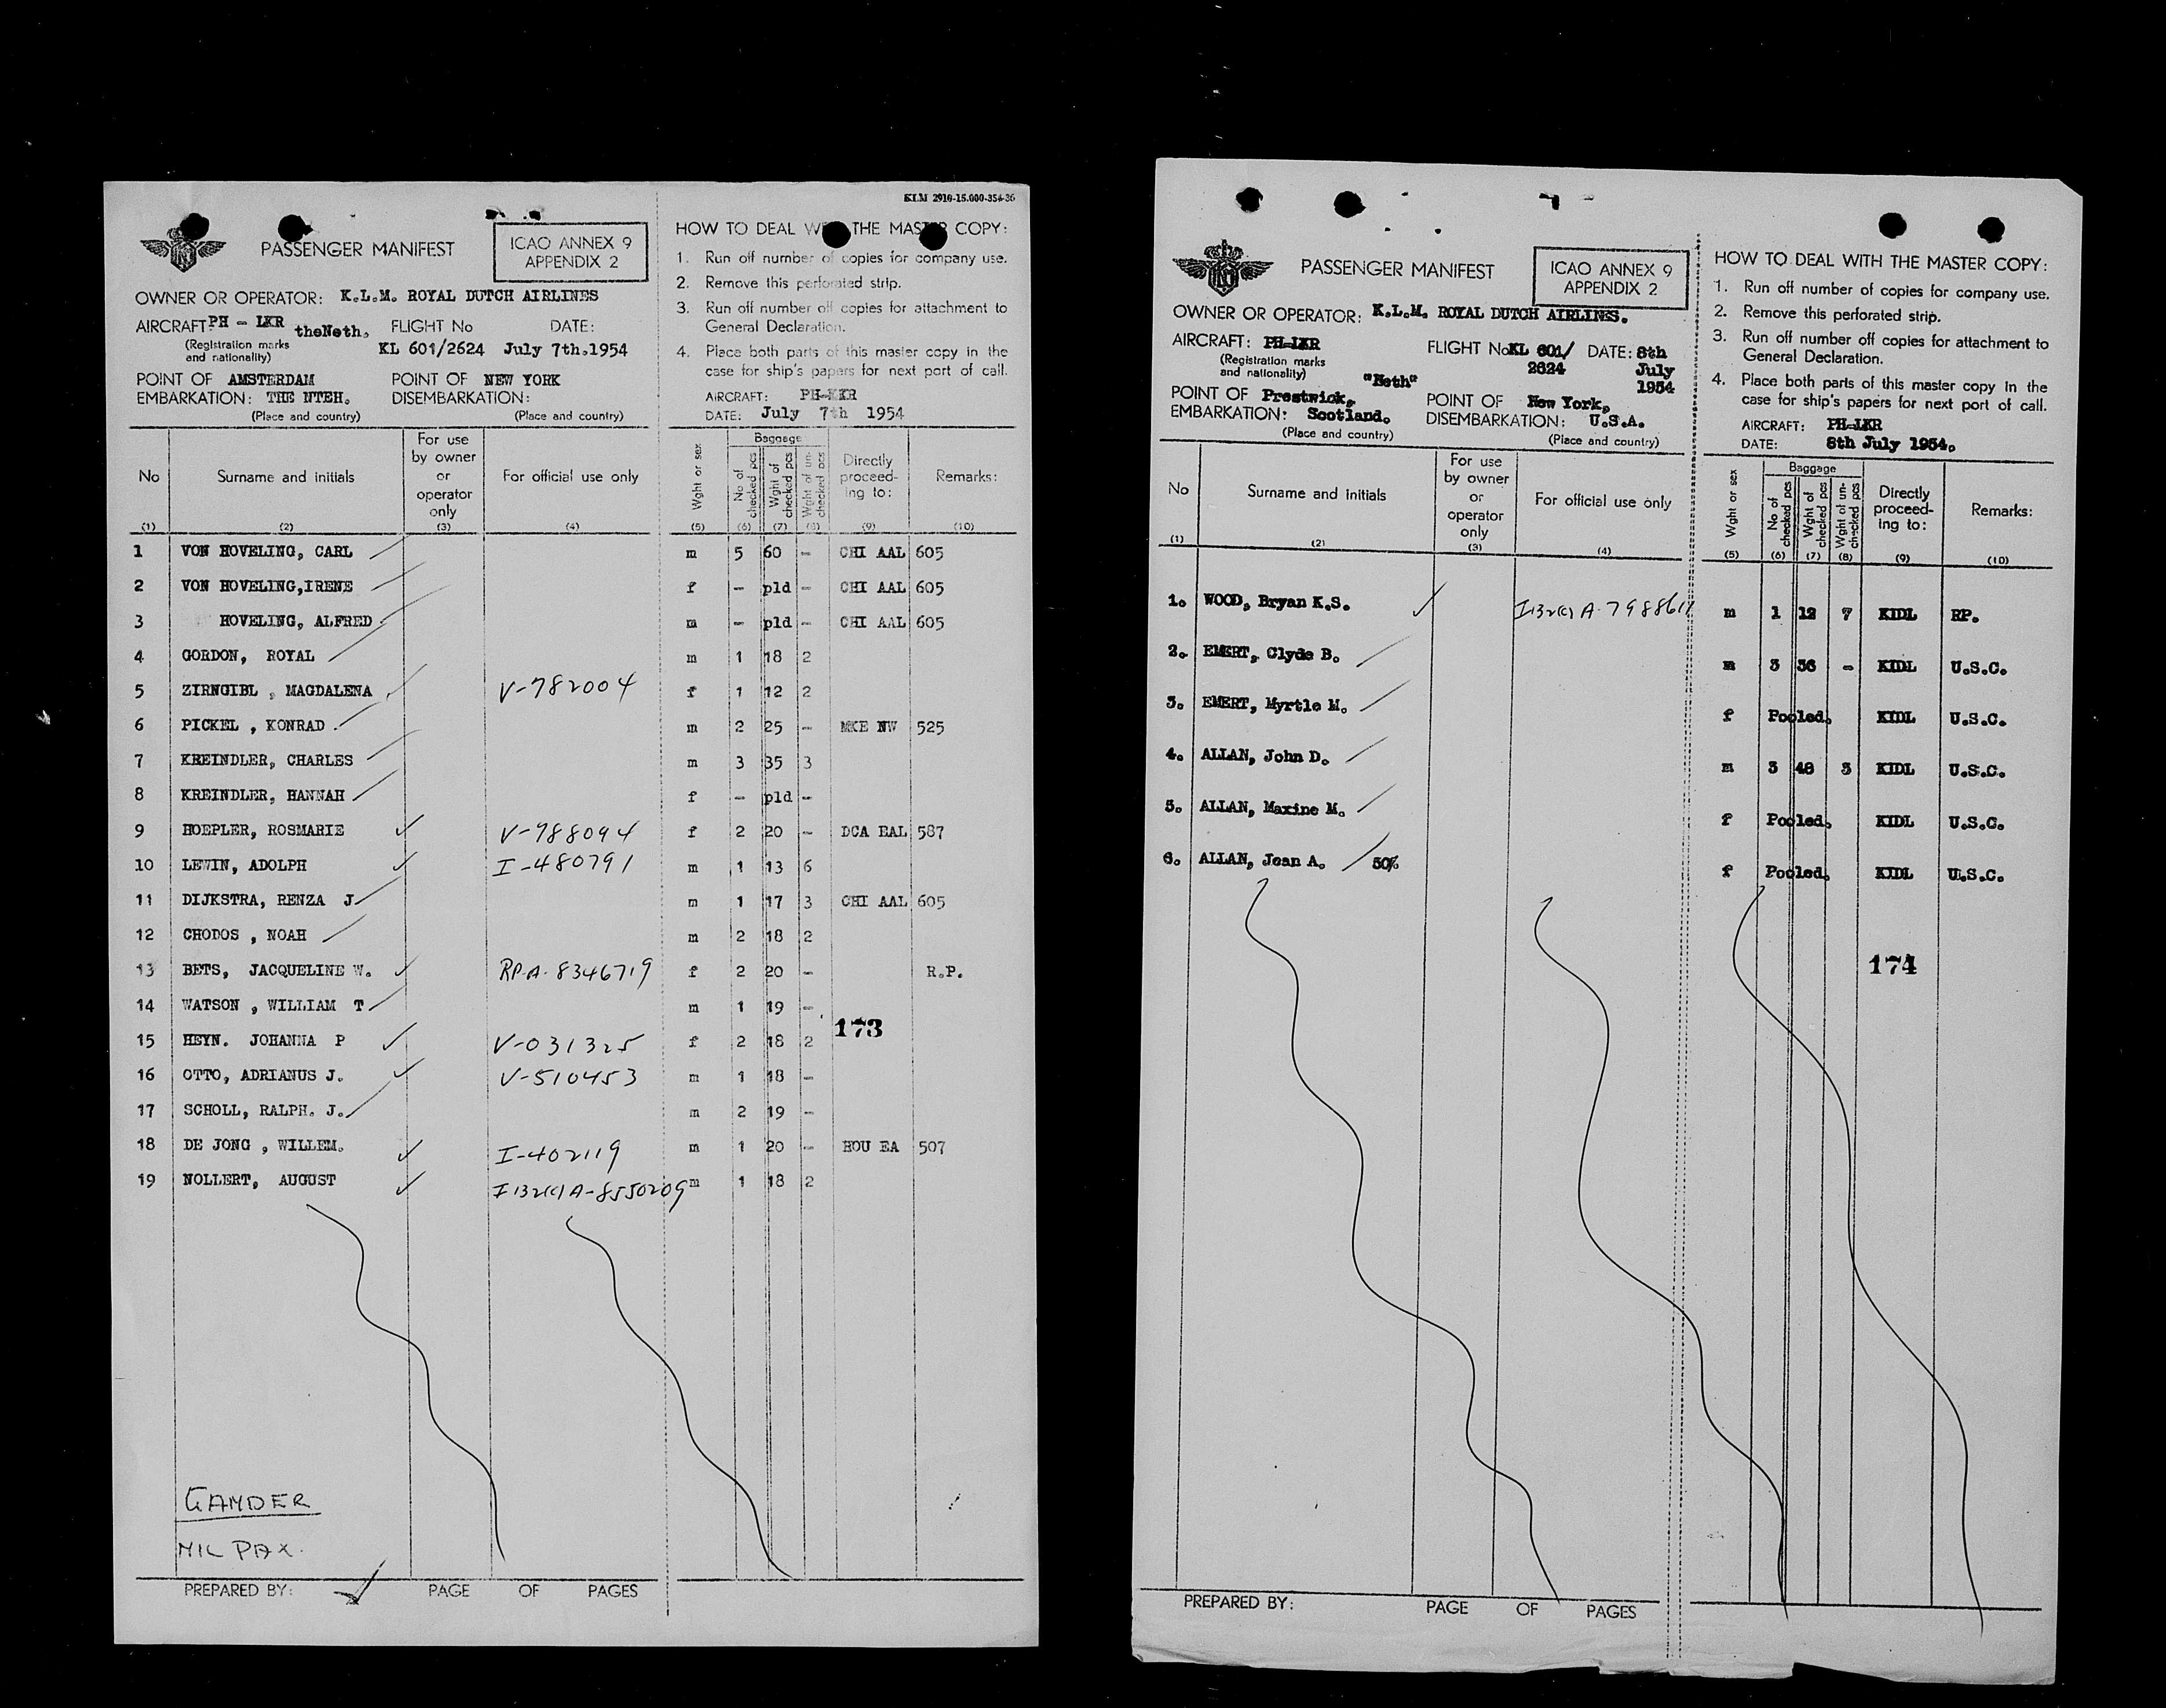 KLM 2910-15.000-354-36
PASSENGER MANIFEST
ICAO ANNEX 9
APPENDIX 2
OWNER OR OPERATOR: K.L.M. ROYAL DUTCH AIRLINES
AIRCRAFT: PH - LKR theNeth. FLIGHT No DATE:
(Registration marks and nationality) KL 601/2624 July 7th.1954
POINT OF AMSTERDAM POINT OF NEW YORK
EMBARKATION: THE NTEH. DISEMBARKATION:
(Place and country) (Place and country)
HOW TO DEAL THE MASTER COPY:
1. Run off number of copies for company use.
2. Remove this perforated strip.
3. Run off number off copies for attachment to
General Declaration.
4. Place both parts of this master copy in the
case for ship's papers for next port of call.
AIRCRAFT: PH-LKR
DATE: July 7th 1954
No Surname and initials For use by owner or operator only For official use only Wght or sex Baggage No of checked pcs Wght of checked pcs Wght of un-checked pcs Directly proceed-ing to: Remarks:
(1) (2) (3) (4) (5) (6) (7) (8) (9) (10)
1 VON HOVELING, CARL m 5 60 - CHI AAL 605
2 VON HOVELING,IRENE f - pld - CHI AAL 605
3 HOVELING, ALFRED m - pld - CHI AAL 605
4 GORDON, ROYAL m 1 18 2
5 ZIRNGIBL , MAGDALENA V-782004 f 1 12 2
6 PICKEL , KONRAD m 2 25 - MKE NW 525
7 KREINDLER, CHARLES m 3 35 3
8 KREINDLER, HANNAH f - pld -
9 HOEPLER, ROSMARIE V-788094 f 2 20 - DCA EAL 587
10 LEWIN, ADOLPH I-480791 m 1 13 6
11 DIJKSTRA, RENZA J m 1 17 3 CHI AAL 605
12 CHODOS , NOAH m 2 18 2
13 BETS, JACQUELINE W. RP-A-8346719 f 2 20 - R.P.
14 WATSON , WILLIAM T m 1 19 -
173
15 HEYN. JOHANNA P V-031325 f 2 18 2
16 OTTO, ADRIANUS J. V-510453 m 1 18 -
17 SCHOLL, RALPH. J. m 2 19 -
18 DE JONG , WILLEM. I-402119 m 1 20 - HOU EA 507
19 NOLLERT, AUGUST I 132(c) A-8550209 m 1 18 2
GANDER
NIL PAX.
PREPARED BY: PAGE OF PAGES
PASSENGER MANIFEST
ICAO ANNEX 9
APPENDIX 2
OWNER OR OPERATOR: K.L.M. ROYAL DUTCH AIRLINES.
AIRCRAFT: PH-LKR FLIGHT No KL 601/ DATE: 8th
(Registration marks and nationality) "Neth" 2624 July
1954
POINT OF Prestwick, POINT OF New York,
EMBARKATION: Scotland. DISEMBARKATION: U.S.A.
(Place and country) (Place and country)
HOW TO DEAL WITH THE MASTER COPY:
1. Run off number of copies for company use.
2. Remove this perforated strip.
3. Run off number off copies for attachment to
General Declaration.
4. Place both parts of this master copy in the
case for ship's papers for next port of call.
AIRCRAFT: PH-LKR
DATE: 8th July 1954.
No Surname and initials For use by owner or operator only For official use only Wght or sex Baggage No of checked pcs Wght of checked pcs Wght of un-checked pcs Directly proceed-ing to: Remarks:
(1) (2) (3) (4) (5) (6) (7) (8) (9) (10)
1. WOOD, Bryan K.S. m 1 12 7 KIDL RP.
2. EMERT, Clyde B. m 3 36 - KIDL U.S.C.
3. EMERT, Myrtle M. f Pooled. KIDL U.S.C.
4. ALLAN, John D. m 3 48 3 KIDL U.S.C.
5. ALLAN, Maxine M. f Pooled. KIDL U.S.C.
6. ALLAN, Jean A. 50% f Pooled. KIDL U.S.C.
174
PREPARED BY: PAGE OF PAGES